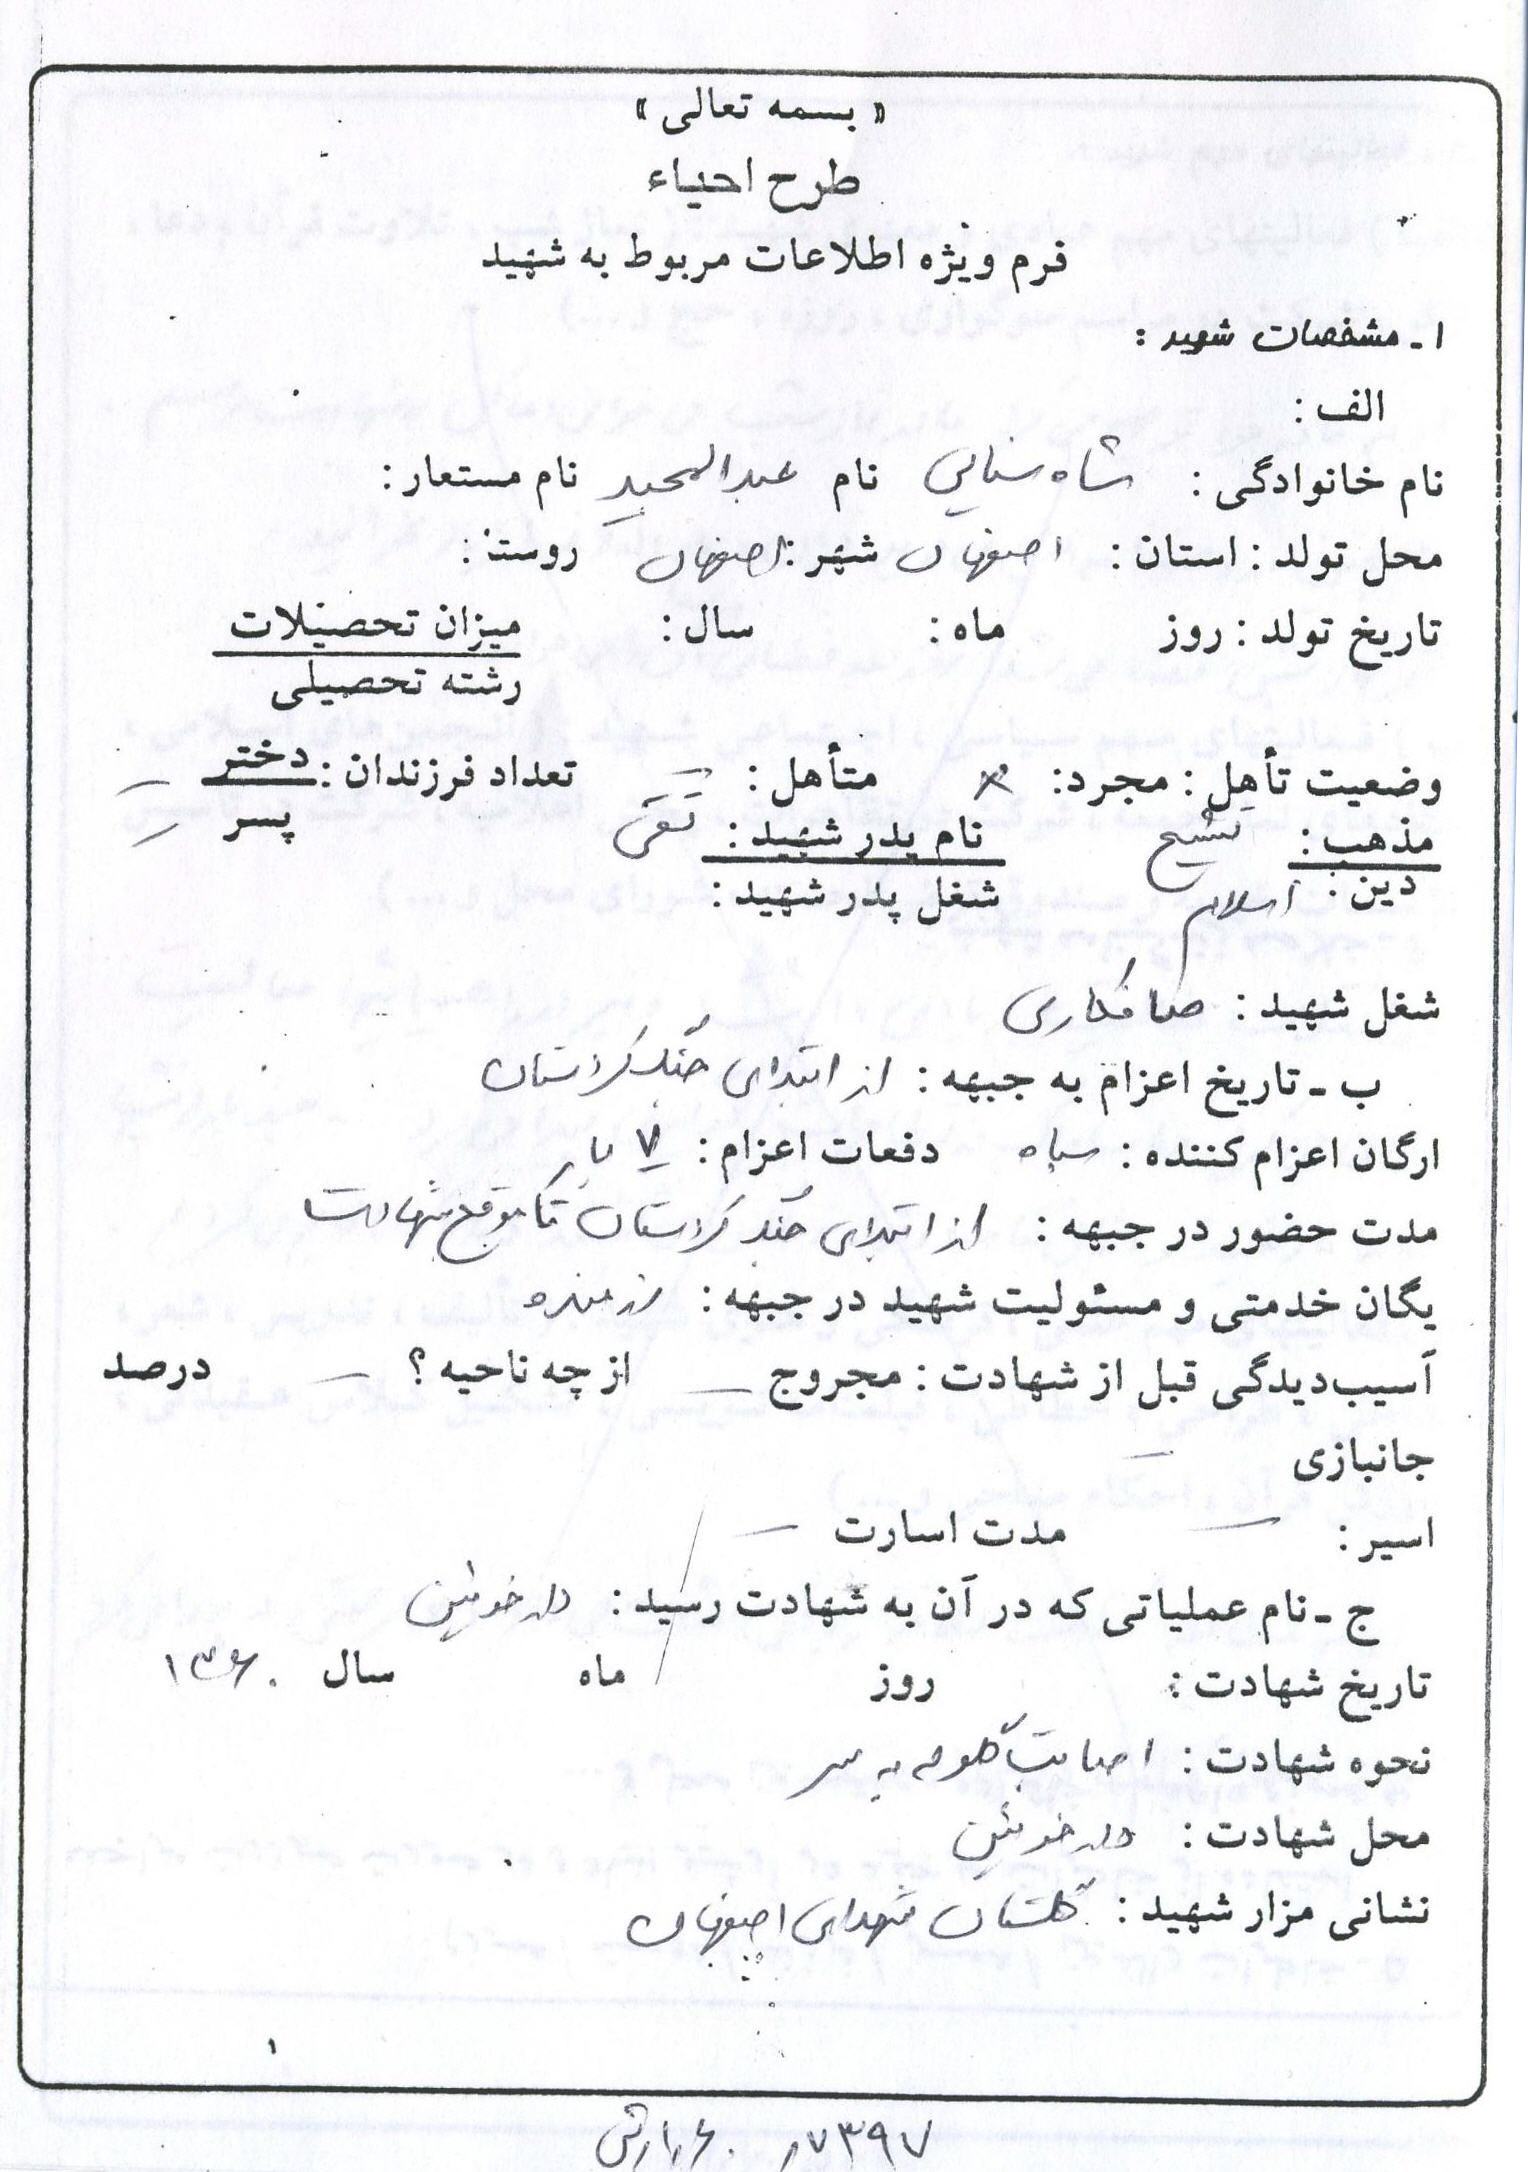 « بسمه تعالی »
طرح احیاء
فرم ویژه اطلاعات مربوط به شهید
۱ ـ مشخصات شهید :
الف :
نام خانوادگی : شاه سنایی نام عبدالمجید نام مستعار :
محل تولد : استان : اصفهان شهر : اصفهان روستا :
تاریخ تولد : روز ماه : سال : میزان تحصیلات
رشته تحصیلی
وضعیت تأهل : مجرد : × متأهل : ـ تعداد فرزندان : دختر ـ
مذهب : تشیع نام پدر شهید : تقی پسر ـ
دین : اسلام شغل پدر شهید :
شغل شهید : صافکاری
ب ـ تاریخ اعزام به جبهه : از ابتدای جنگ کردستان
ارگان اعزام کننده : سپاه دفعات اعزام : ۷ بار
مدت حضور در جبهه : از ابتدای جنگ کردستان تا موقع شهادت
یگان خدمتی و مسئولیت شهید در جبهه : رزمنده
آسیب‌دیدگی قبل از شهادت : مجروح ـ از چه ناحیه ؟ ـ درصد
جانبازی ـ
اسیر : ـ مدت اسارت ـ
ج ـ نام عملیاتی که در آن به شهادت رسید : دارخوئین
تاریخ شهادت : روز ماه سال ۱۳۶۰
نحوه شهادت : اصابت گلوله به سر
محل شهادت : دارخوئین
نشانی مزار شهید : گلستان شهدای اصفهان
۱